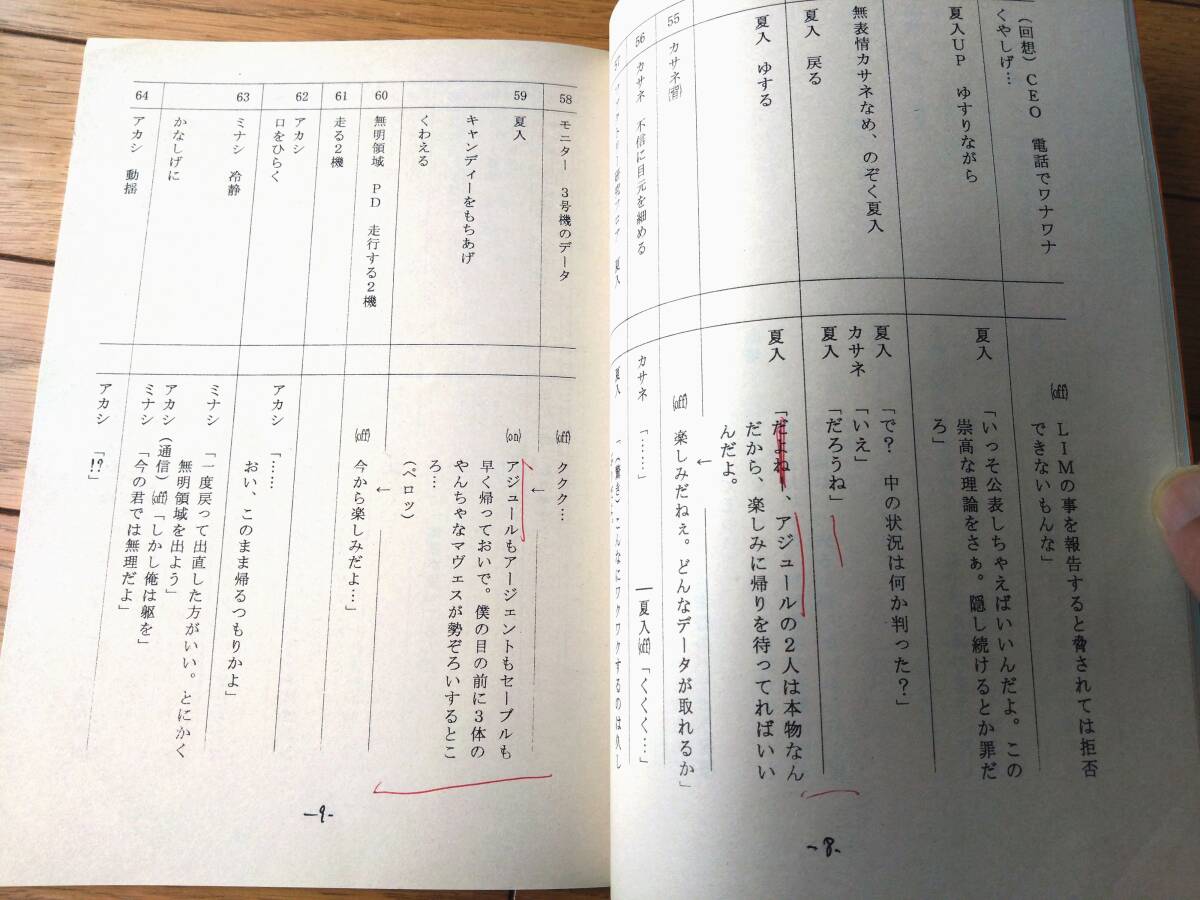 (回想)CEO 電話でワナワナ
くやしげ…
(off) LIMの事を報告すると脅されては拒否
できないもんな」
夏入UP ゆすりながら
夏入 「いっそ公表しちゃえばいいんだよ。この
崇高な理論をさぁ。隠し続けるとか罪だ
ろ」
無表情カサネなめ、のぞく夏入
夏入 「で? 中の状況は何か判った?」
カサネ 「いえ」
夏入 戻る
夏入 「だろうね」
夏入 ゆする
夏入 「だよねー、アジュールの2人は本物なん
だから、楽しみに帰りを待ってればいい
んだよ。
55 カサネ
↓
(off) 楽しみだねぇ。どんなデータが取れるか」
56 カサネ 不信に目元を細める
カサネ 「……」 ―夏入(off)「くくく…」
57
夏入
夏入
-8-
58 モニター 3号機のデータ
(off) ククク…
59 夏入
キャンディーをもちあげ
くわえる
↓
(on) アジュールもアージェントもセーブルも
早く帰っておいで。僕の目の前に3体の
やんちゃなマヴェスが勢ぞろいするとこ
ろ…
(ペロッ)
60 無明領域 PD 走行する2機
↓
(off) 今から楽しみだよ…」
61 走る2機
62 アカシ
口をひらく
アカシ 「……
おい、このまま帰るつもりかよ」
63 ミナシ 冷静
ミナシ 「一度戻って出直した方がいい。とにかく
無明領域を出よう」
かなしげに
アカシ (通信)(off)「しかし俺は躯を」
ミナシ 「今の君では無理だよ」
64 アカシ 動揺
アカシ 「!?」
-9-